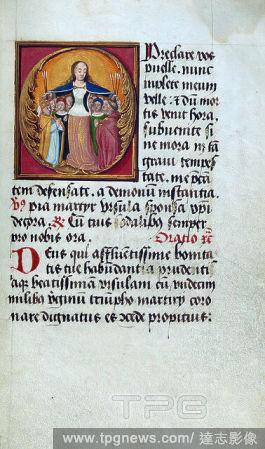 Preclare vos
puelle. nunc
implete meum
velle. & dum mor
tis venit hora,
subuenite si
ne mora in tam
graui tempes
tate. me pian
tem defensate. a demonum instantia.
pia martyr ursula sponsa xpi
decora. Cum tuis sodalibus semper
pro nobis ora. Oratio
Deus qui affluentissime bonita
tis tue habundantia prudenti
atque beatissimam ursulam cum undecim
milibus virginum triumpho martyrii coro
nare dignatus es concede propitius:
TPG
www.tpgnews.com/達志影像